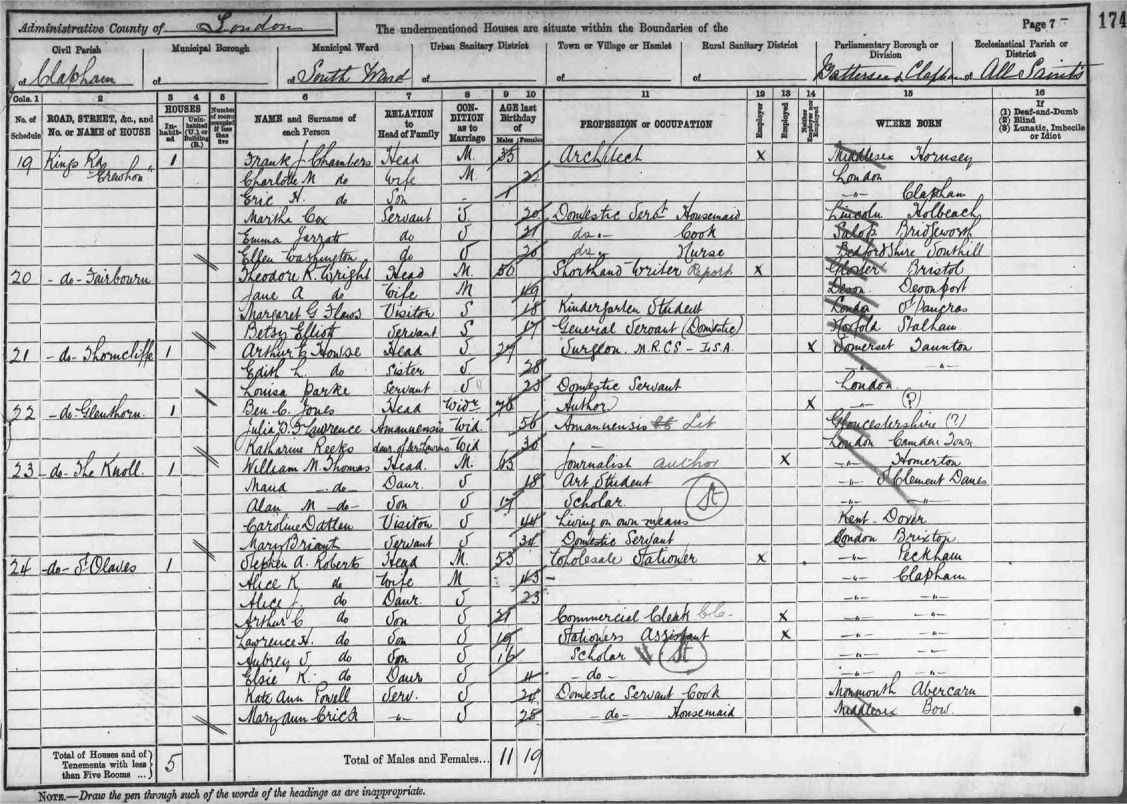 Administrative County of London The undermentioned Houses are situate within the Boundaries of the Page 7 174
Civil Parish Municipal Borough Municipal Ward Urban Sanitary District Town or Village or Hamlet Rural Sanitary District Parliamentary Borough or Division Ecclesiastical Parish or District
of Clapham of of South Ward of of of Battersea & Clapham of All Saints
Cols. 1 2 3 4 5 6 7 8 9 10 11 12 13 14 15 16
No. of Schedule ROAD, STREET, &c., and No. or NAME of HOUSE HOUSES In-habit-ed Unin-habited (U.) or Building (B.) Number of rooms occupied if less than five NAME and Surname of each Person RELATION to Head of Family CON-DITION as to Marriage AGE last Birthday of Males Females PROFESSION or OCCUPATION Employer Employed Neither Employer nor Employed WHERE BORN If (1) Deaf-and-Dumb (2) Blind (3) Lunatic, Imbecile or Idiot
19 Kings Rd 1 Frank J Chambers Head M. 35 Architect X Middlesex Hornsey
"Erewhon" Charlotte M do Wife M London
Eric H. do Son - -"- Clapham
Martha Cox Servant S 20 Domestic Servt Housemaid Lincoln Holbeach
Emma Jarratt do S 21 do - Cook Salop Bridgeworth
Ellen Washington do S do Nurse Bedfordshire Southill
20 -do- Fairbourn 1 Theodore R. Wright Head M. 50 Shorthand Writer Report. X Gloster Bristol
Jane A do Wife M 49 Devon. Devonport
Margaret G Flaws Visitor S 18 Kindergarten Student London St Pancras
Betsy Elliott Servant S 17 General Servant (Domestic) Norfolk Stalham
21 -do- Thorncliffe 1 Arthur E Howse Head S. 27 Surgeon. M.R.C.S - L.S.A. X Somerset Taunton
Edith L. do Sister S 28 -"- -"-
Louisa Parke Servant S 23 Domestic Servant London.
22 -do- Glenthorn. 1 Ben C. Jones Head Widr 76 Author X -"- (?)
Julia Lawrence Amanuensis Wid. 56 Amanuensis Lit Gloucestershire (?)
Katharine Reeks Wid 30 London Camden Town
23 -do- The Knoll. 1 William M. Thomas Head. M. 63 Journalist author X -"- Homerton
Maud -do- Daur. S 18 Art Student -"- St Clement Danes
Alan M -do- Son S 17 Scholar. St -"- -"-
Caroline Visitor S 44 Living on own means Kent - Dover
Mary Briant Servant S 34 Domestic Servant London Brixton
24 -do- St Olaves 1 Stephen A. Roberts Head M. 53 Wholesale Stationer X -"- Peckham
Alice K do Wife M 43 - -"- Clapham
Alice J. do Daur. S 23 -"- -"-
Arthur C do Son S 21 Commercial Clerk X -"- -"-
Lawrence H. do Son S 19 Stationers Assistant X -"- -"-
Aubrey S do Son S 16 Scholar St -"- -"-
Elsie K. do Daur S 4 -do- -"- -"-
Kate Ann Powell Serv. S 24 Domestic Servant Cook Monmouth Abercarn
Mary Ann Crick -"- S 25 -do- Housemaid Middlesex Bow.
Total of Houses and of Tenements with less than Five Rooms ... 5 Total of Males and Females... 11 19
NOTE.—Draw the pen through such of the words of the headings as are inappropriate.